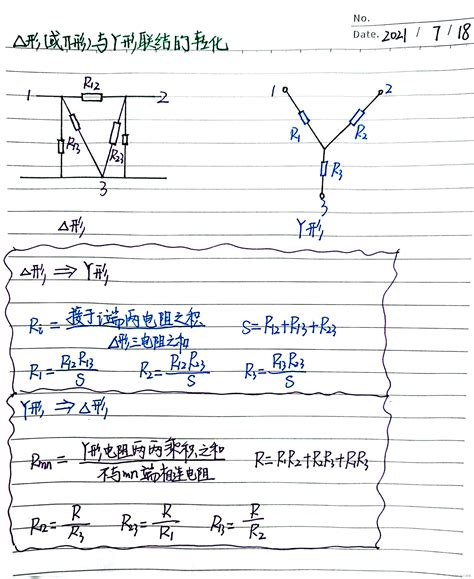 No.
Date. 2021 / 7 / 18
△形(或π形)与Y形联结的转化
R12
1 2 1 2
R13 R23 R1 R2
R3
3 3
△形 Y形
△形 ⇒ Y形
Ri = 接于i端两电阻之积 / △形三电阻之和 S=R12+R13+R23
R1 = R12R13 / S R2 = R12R23 / S R3 = R13R23 / S
Y形 ⇒ △形
Rmn = Y形电阻两两乘积之和 / 不与mn端相连电阻 R=R1R2+R2R3+R1R3
R12 = R / R3 R23 = R / R1 R13 = R / R2